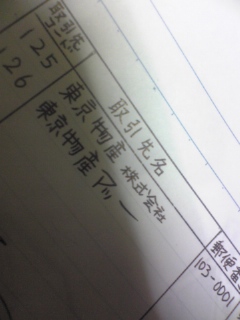 取引先コード 取引先名 郵便番
125 東京物産 株式会社 103-0001
126 東京物産アッー